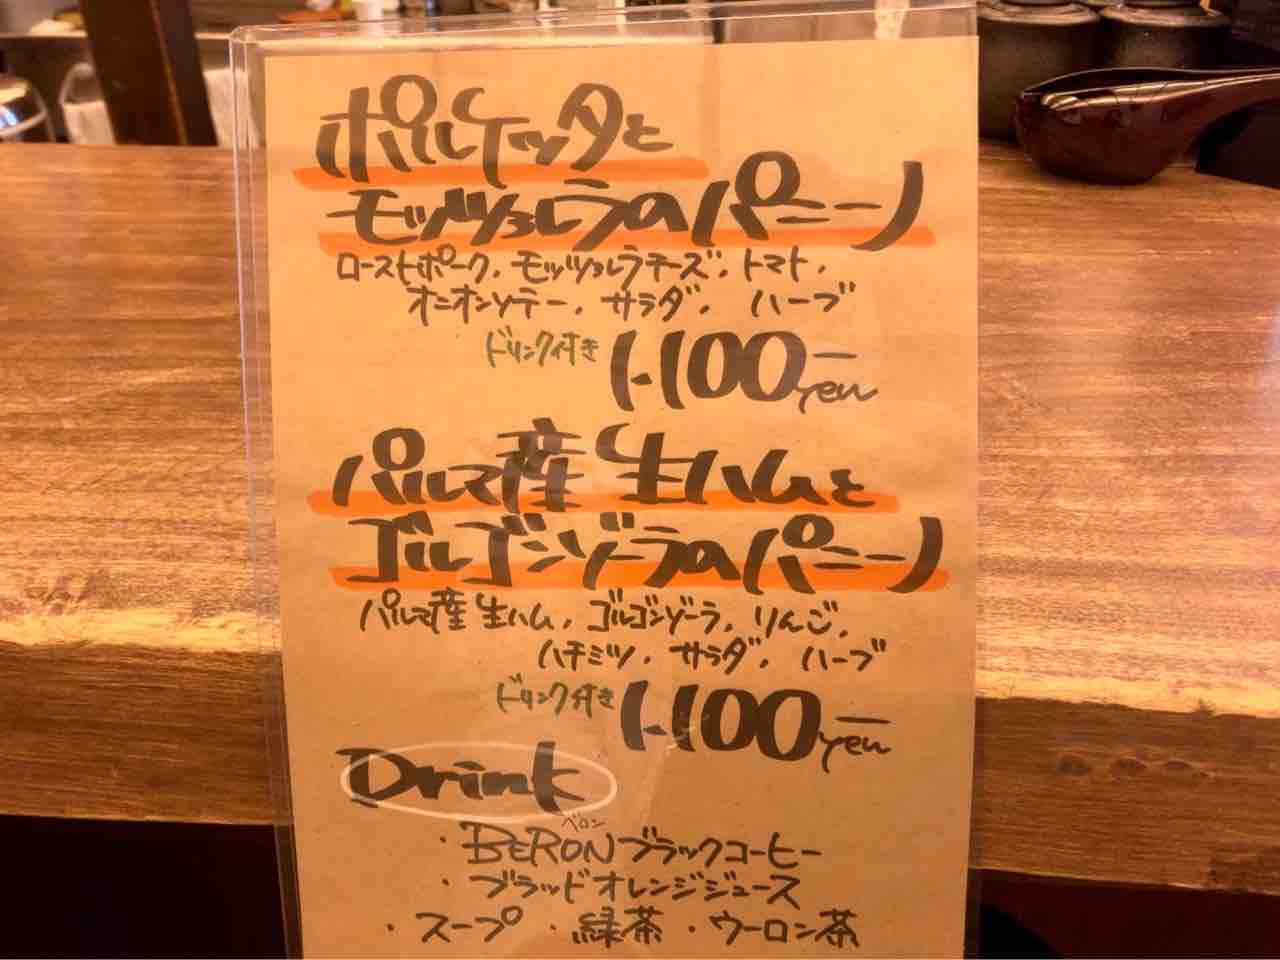 ポルケッタと
モッツァレラのパニーノ
ローストポーク、モッツァレラチーズ、トマト、
オニオンソテー、サラダ、ハーブ
ドリンク付き 1,100-yen
パルマ産 生ハムと
ゴルゴンゾーラのパニーノ
パルマ産 生ハム、ゴルゴンゾーラ、りんご、
ハチミツ、サラダ、ハーブ
ドリンク付き 1,100-yen
Drink
ベロン
・BERONブラックコーヒー
・ブラッドオレンジジュース
・スープ ・緑茶 ・ウーロン茶